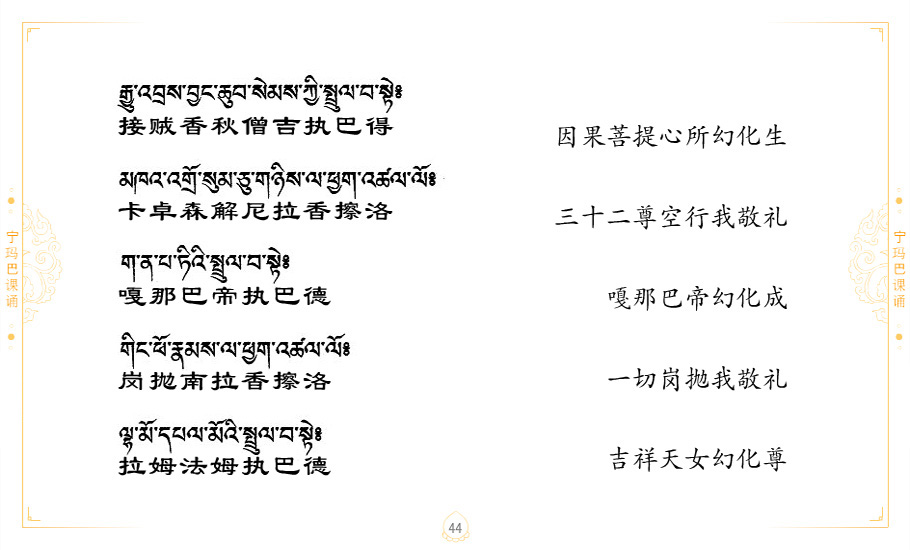 རྒྱུ་འབྲས་བྱང་ཆུབ་སེམས་ཀྱི་སྤྲུལ་བ་སྟེ༔
接贼香秋僧吉执巴得
因果菩提心所幻化生
མཁའ་འགྲོ་སུམ་ཅུ་གཉིས་ལ་ཕྱག་འཚལ་ལོ༔
卡卓森解尼拉香擦洛
三十二尊空行我敬礼
ག་ན་པ་ཏིའི་སྤྲུལ་བ་སྟེ༔
嘎那巴帝执巴德
嘎那巴帝幻化成
གིང་ཕོ་རྣམས་ལ་ཕྱག་འཚལ་ལོ༔
岗抛南拉香擦洛
一切岗抛我敬礼
ལྷ་མོ་དཔལ་མོའི་སྤྲུལ་བ་སྟེ༔
拉姆法姆执巴德
吉祥天女幻化尊
宁玛巴课诵
宁玛巴课诵
44